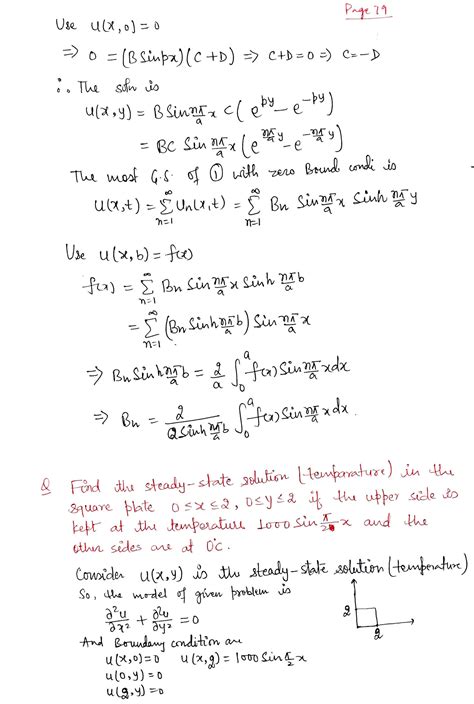 Page 29
Use u(x,0)=0
⇒ 0 = (B Sinpx)(C+D) ⇒ C+D=0 ⇒ C=-D
∴ The soln is
u(x,y) = B Sin nπ/a x C(e^{py} - e^{-py})
= BC Sin nπ/a x (e^{nπ/a y} - e^{-nπ/a y})
The most G.S. of ① with zero Bound condi is
u(x,t) = ∑_{n=1}^{∞} Un(x,t) = ∑_{n=1}^{∞} Bn Sin nπ/a x Sinh nπ/a y
Use u(x,b) = f(x)
f(x) = ∑_{n=1}^{∞} Bn Sin nπ/a x Sinh nπ/a b
= ∑_{n=1}^{∞} (Bn Sinh nπ/a b) Sin nπ/a x
⇒ Bn Sinh nπ/a b = 2/a ∫_0^a f(x) Sin nπ/a x dx
⇒ Bn = 2/(a Sinh nπ/a b) ∫_0^a f(x) Sin nπ/a x dx.
Q Find the steady-state solution (temperature) in the
square plate 0≤x≤2, 0≤y≤2 if the upper side is
kept at the temperature 1000 Sin π/2 x and the
other sides are at 0°C.
Consider u(x,y) is the steady-state solution (temperature)
So, the model of given problem is
∂²u/∂x² + ∂²u/∂y² = 0
2
2
And Boundary condition are
u(x,0)=0 u(x,2) = 1000 Sin π/2 x
u(0,y)=0
u(2,y)=0